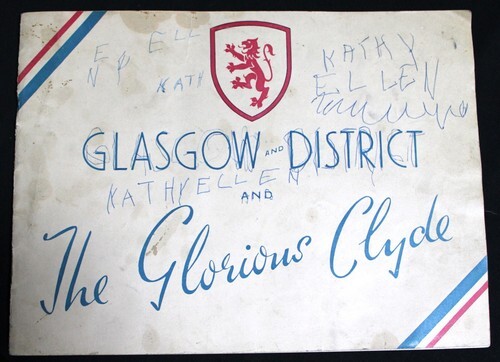 E ELL
N
KATH
KATHY
ELLEN
GLASGOW AND DISTRICT
KATHY ELLEN
AND
The Glorious Clyde